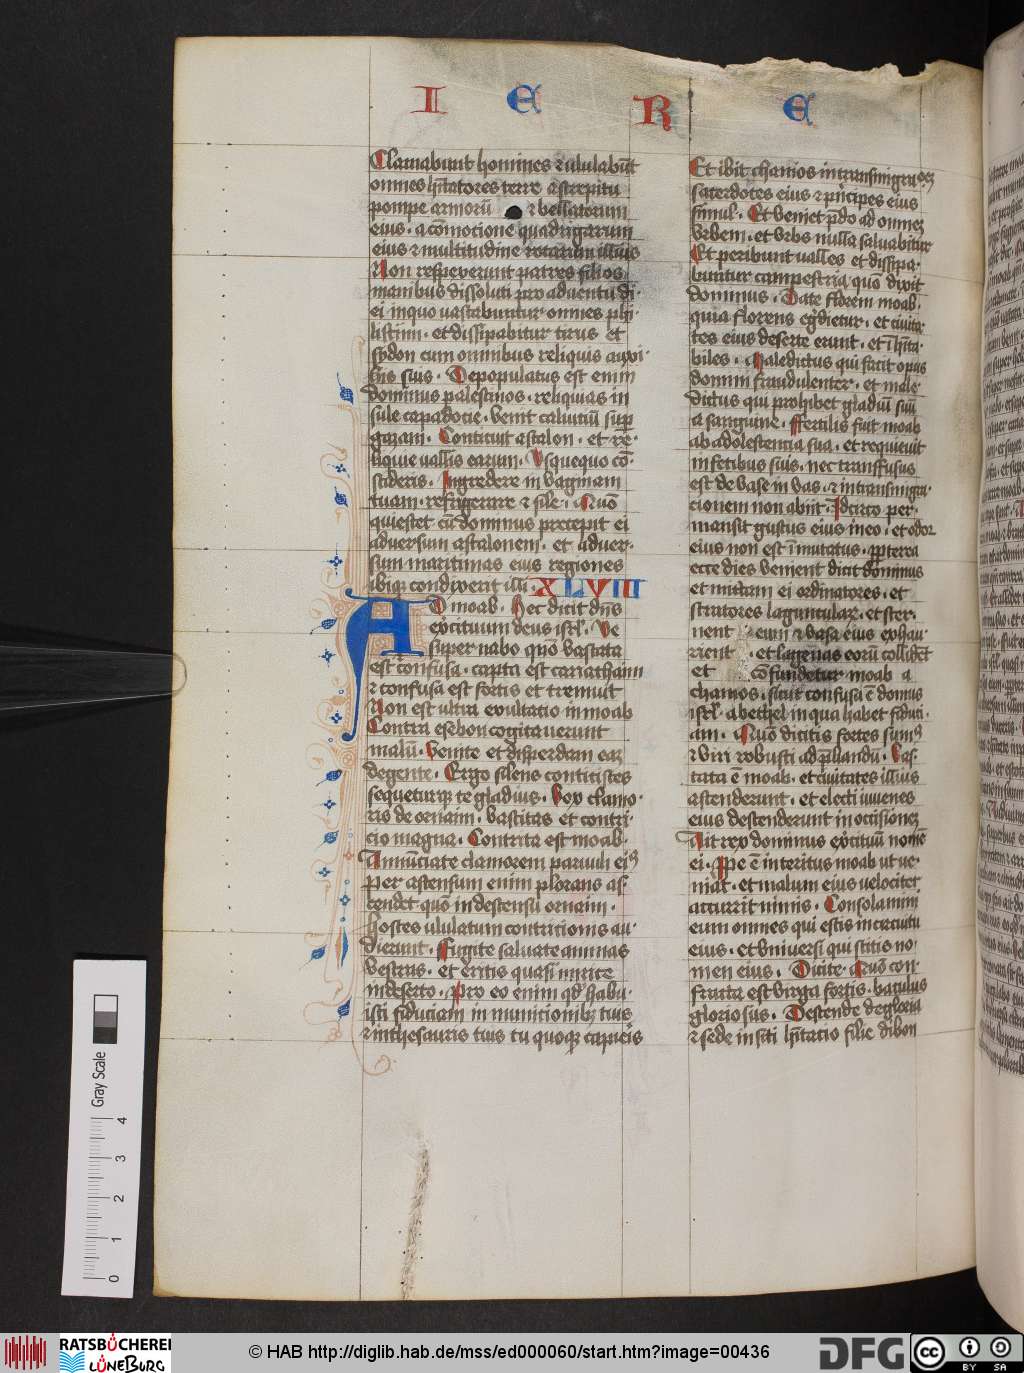 I E R E
Clamabunt homines ⁊ ululabūt
omnes hītatores terre a strepitu
pompe armorū ⁊ bellatorum
eius · a cōmotione quadrigarum
eius ⁊ multitudine rotarum illius
Non respexerunt patres filios
manibus dissoluti pro adventu di·
ei in quo vastabuntur omnes phi·
listiim · et dissipabitur tirus et
sydon cum omnibus reliquis auxi·
liis suis · Depopulatus est enim
dominus palestinos · reliquias in
sule capadocie · venit calvitiū sup
gazam · Conticuit ascalon · et re·
liquie vallis earum · Usquequo cō·
scideris · Ingredere in vaginam
tuam · refrigerare ⁊ sile · Quō
quiescet cū dominus precepit ei
adversum ascalonem · et adver·
sum maritimas eius regiones
ibiq; condixerit illi · XLVIII
AD moab · Hec dicit dn̄s
exercituum deus isrl' · Ve
super nabo quō vastata
est ⁊ confusa · capta est cariathaim
⁊ confusa est fortis et tremuit
Non est ultra exultatio in moab
Contra esebon cogitaverunt
malū · Venite et disperdam eaz
de gente · Ergo silens conticisces
sequeturq; te gladius · Vox clamo·
ris de ornaim · vastitas et contri·
cio magna · Contrita est moab ·
Annūciate clamorem parvuli ei9
Per ascensum enim plorans as·
cendet quō in descensu ornaim ·
hostes ululatum contricionis au·
dierunt · Fugite salvate animas
vestras · et eritis quasi mirice
in deserto · Pro eo enim qd' habu·
isti fiduciam in municionibz tuis
⁊ in thesauris tuis tu quoq; capieris
Et ibit chamos in transmigracōez
sacerdotes eius ⁊ pīncipes eius
simul · Et veniet p̄do ad omnez
urbem · et urbs nulla salvabitur
Et peribunt valles et dissipa·
buntur campestria quō dixit
dominus · Date florem moab
quia florens egredietur · et civita·
tes eius deserte erunt · et īhīta·
biles · Maledictus qui facit opus
domini fraudulenter · et male·
dictus qui prohibet gladiū suū
a sanguine · Fertilis fuit moab
ab adolescentia sua · et requievit
in fecibus suis · nec transfusus
est de vase in vas · ⁊ in transmigra·
cionem non abiit · Idcirco per·
mansit gustus eius in eo · et odor
eius non est īmutatus · ppterea
ecce dies venient dicit dominus
et mittam ei ordinatores · et
stratores laguncularz · et ster·
nent eum ⁊ vasa eius exhau·
rient · et lagenas eorū collidēt
et cōfundetur moab a
chamos · sicut confusa ē domus
isrl' a bethel in qua habet fiduci·
am · Quō dicitis fortes sum9
⁊ viri robusti ad p̄liandū · Vas·
tata ē moab · et civitates illius
ascenderunt · et electi iuvenes
eius descenderunt in occisionez
Ait rex dominus exercituū nomē
ei · Ppe ē interitus moab ut ve·
niat · et malum eius velociter
accurrit nimis · Consolamini
eum omnes qui estis in circuitu
eius · et universi qui scitis no·
men eius · Dicite · Quō con·
fracta est virga fortis · baculus
gloriosus · Descende de gloria
⁊ sede in siti hītatio filie dibon
Gray Scale
0 1 2 3 4
RATSBÜCHEREI
LÜNEBURG
© HAB http://diglib.hab.de/mss/ed000060/start.htm?image=00436
DFG
CC BY SA